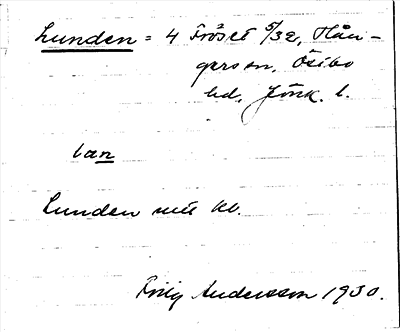 Lunden = 4 Fröset 5/32, Hån-
ger sn, Östbo
hd, Jönk. l.
lan
Lunden mü kb.
Andersson 1930.